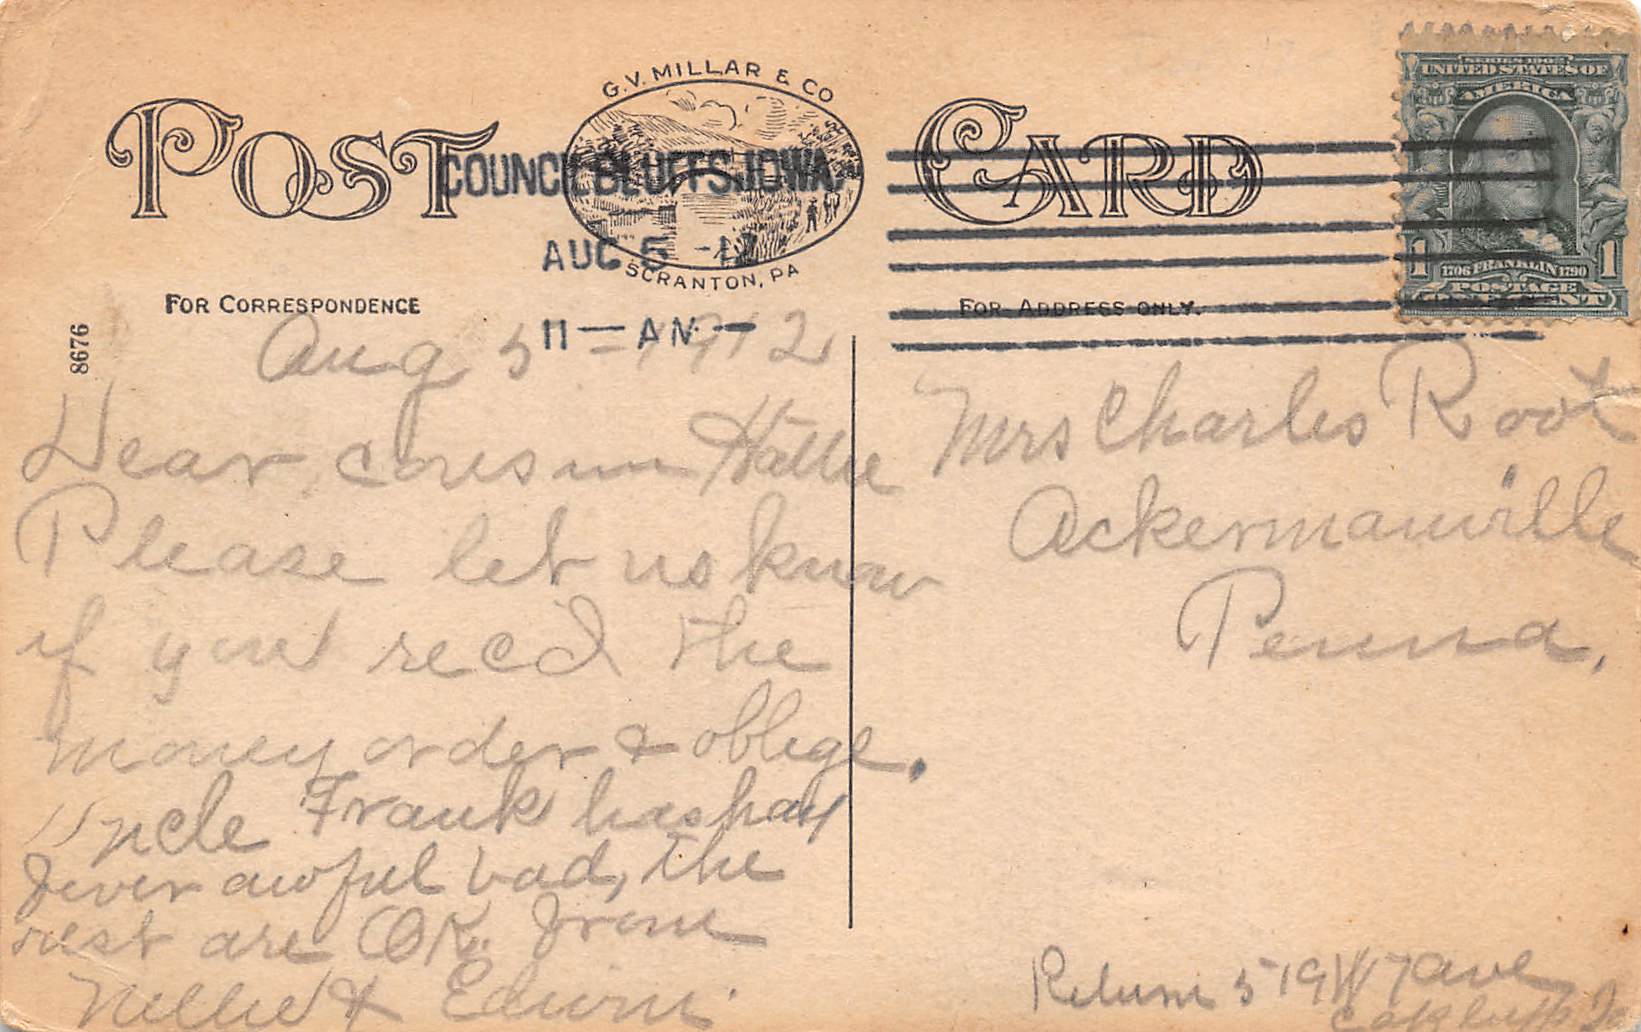 G.V. MILLAR & CO
SCRANTON, PA
POST CARD
COUNCIL BLUFFS, IOWA
AUG 5 -12
11 — AM —
SERIES 1902
UNITED STATES OF
AMERICA
1 1706 FRANKLIN 1790 1
POSTAGE
ONE CENT
FOR CORRESPONDENCE
FOR ADDRESS ONLY.
8676
Aug 5 - 1912
Dear cousin Hattie
Please let us know
if you rec'd the
money order & oblige.
Uncle Frank has hay
fever awful bad, the
rest are OK. From
Nellie & Edwin.
Mrs Charles Root
Ackermanville
Penna.
Return 519 W 7 ave